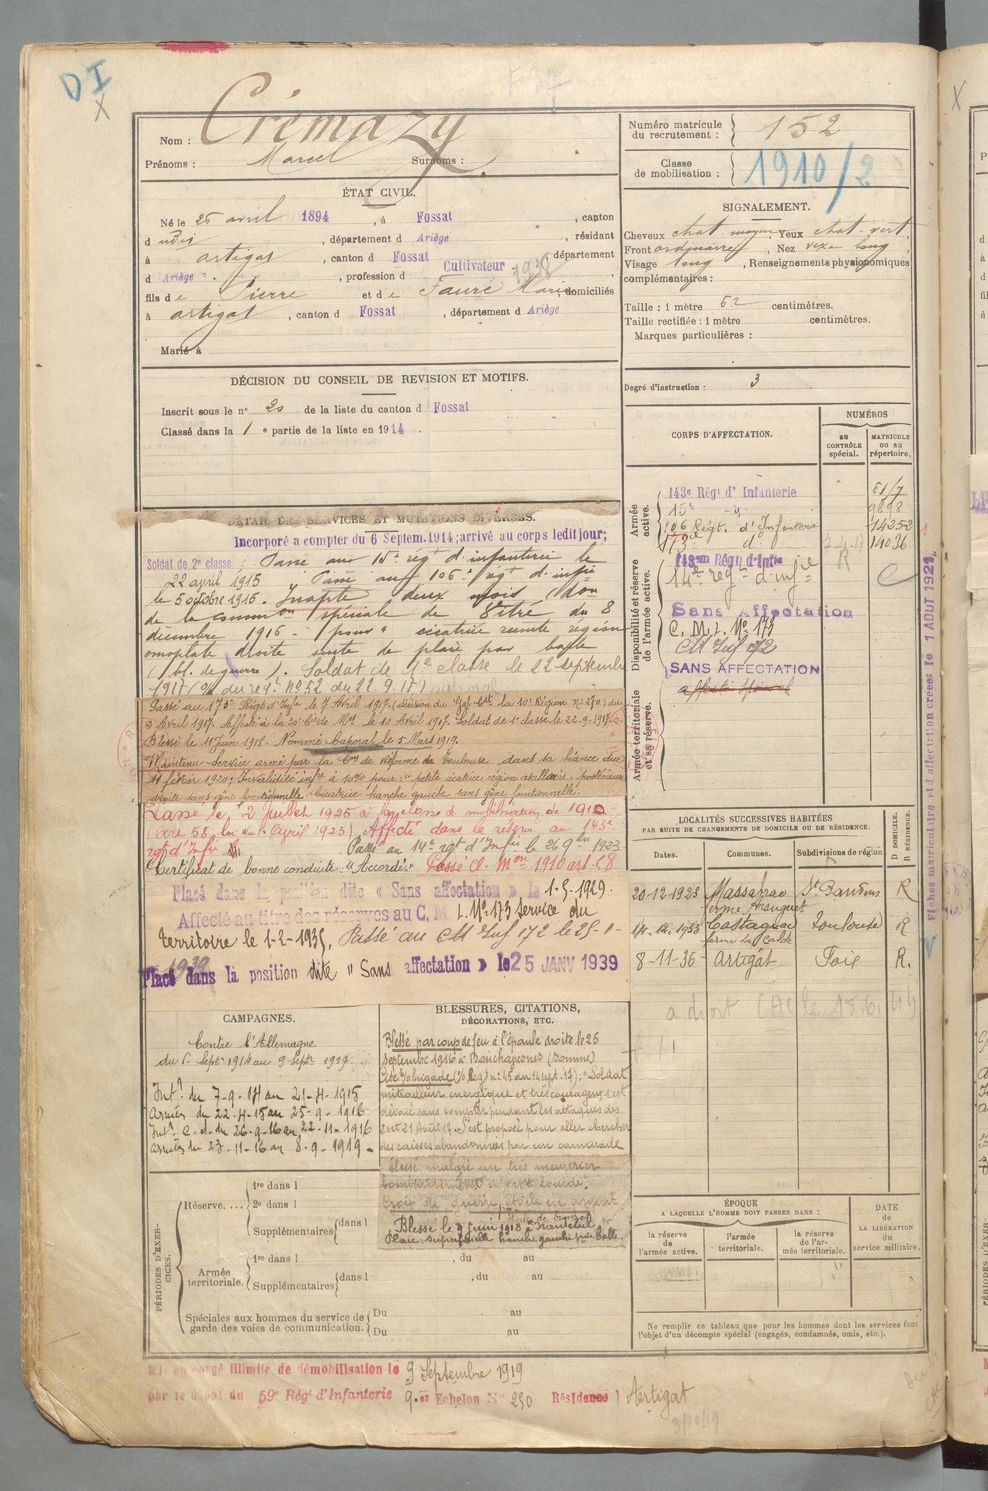 DI
X
F 37
Nom : Crémazy
Prénoms : Marcel Surnoms :
Numéro matricule du recrutement : 152
Classe de mobilisation : 1910/2
ÉTAT CIVIL.
Né le 25 avril 1894, à Fossat, canton
d udit, département d Ariège, résidant
à artigat, canton d Fossat, département
d Ariège, profession d Cultivateur
fils de Pierre et de Fauré Marie, domiciliés
à artigat, canton d Fossat, département d Ariège
Marié à
SIGNALEMENT.
Cheveux chat. moyen Yeux chat. vert
Front ordinaire, Nez vexe long
Visage long, Renseignements physionomiques
complémentaires :
Taille : 1 mètre 62 centimètres.
Taille rectifiée : 1 mètre centimètres.
Marques particulières :
Degré d'instruction : 3
DÉCISION DU CONSEIL DE REVISION ET MOTIFS.
Inscrit sous le n° 20 de la liste du canton d Fossat
Classé dans la 1e partie de la liste en 1914.
CORPS D'AFFECTATION.
NUMÉROS
AU CONTRÔLE spécial.
MATRICULE OU AU répertoire.
Armée active.
143e Régt d'Infanterie 61/7
15e -d- 9898
106 Régt. d'Infanterie 14252
173e d° 14036
Disponibilité et réserve de l'armée active.
143em Régt d'Infie
14e regt d'infie
Sans Affectation
C. M. I. No 173
CM Inf 172
SANS AFFECTATION
affecté spécial
Armée territoriale et sa réserve.
DÉTAIL DES SERVICES ET MUTATIONS DIVERSES.
Incorporé a compter du 6 Septem. 1914; arrivé au corps ledit jour;
Soldat de 2e classe. Passé au 15e régt d'infanterie le
22 avril 1915. Passé au 106e régt d'infie
le 5 octobre 1915. Inapte deux mois don
de la commion spéciale de du 8
décembre 1916 - pour " cicatrice récente région
omoplate droite suite de plaie par balle
(bl. de guerre). Soldat de 1e classe le 22 septembre
1917 (O/ du régt No 52 du 22.9.17)
Passé au 173e Régt d'Infie le 7 Avril 1917. (décision du Gal Ct la 10e Région No 270) du
2 Avril 1917. Affecté à la 30e Cie de Mrs le 10 Avril 1917. Soldat de 1e classe le 22-9-1917.
Blessé le 11 Juin 1918. Nommé Caporal le 5 Mars 1919.
Maintenu Service armé par la Com de Réforme de Toulouse dans sa séance du
11 février 1920; Invalidité infre à 10% pour: " petite cicatrice région axillaire, postérieure
droite sans gêne fonctionnelle. Cicatrice hanche gauche sans gêne fonctionnelle.
Passé le 2 Juillet 1925 à la classe de mobilisation de 1910
(art 58, loi du 1 Avril 1923) Affecté dans la réserve au 143e
rgt d'Infie Passé au 14e rgt d'Infie le 26 9bre 1923
Certificat de bonne conduite : " Accordé." Passé Cl. Mon 1910 art 58
Placé dans la position dite « Sans affectation » le 1-5-1929.
Affecté au titre des réserves au C. M. I. No 173 service du
territoire le 1-2-1935, Passé au CM Inf 172 le 25-1-
1939
Placé dans la position dite " Sans affectation » le 25 JANV 1939
LOCALITÉS SUCCESSIVES HABITÉES
PAR SUITE DE CHANGEMENTS DE DOMICILE OU DE RÉSIDENCE.
Dates. Communes. Subdivisions de région D DOMICILE. R RÉSIDENCE.
20-12-1923 St Gaudens R
14-12-1933 Castagnac Toulouse R
8-11-36 Artigat Foix R.
Fiches matriculaire et d affectation créées le 1 AOUT 1929
CAMPAGNES.
Contre l'Allemagne
du 6 Septre 1914 au 9 Septre 1919
Intr du 7-9-14 au 21-4-1915
Armées du 22-4-15 au 25-9-1916
Intr C. d. du 26-9-16 au 22-11-1916
Armées du 23-11-16 au 8-9-1919.
BLESSURES, CITATIONS,
DÉCORATIONS, ETC.
Blessé par coup de feu à l'épaule droite le 25
Septembre 1916 à Bouchavesnes (Somme)
Cité O/brigade (O/ Régt n° 45 du 14 sept. 17). " Soldat
mitrailleur énergique et très courageux s'est
dévoué sans compter pendant les attaques des
20 et 21 Août 17. S'est proposé pour aller chercher
des caisses abandonnées par un camarade
blessé malgré un très meurtrier
bombardement
Croix de guerre étoile en argent
Blessé le 9 juin 1918 à
Plaie superficielle hanche gauche par balle.
PÉRIODES D'EXERCICES.
Réserve....
1re dans l
2e dans l
Supplémentaires dans l
Armée territoriale.
1re dans l , du au
2e dans l , du au
Supplémentaires dans l
Spéciales aux hommes du service de garde des voies de communication.
Du au
Du au
ÉPOQUE
A LAQUELLE L'HOMME DOIT PASSER DANS :
la réserve de l'armée active.
l'armée territoriale.
la réserve de l'armée territoriale.
DATE de LA LIBÉRATION du service militaire.
Ne remplir ce tableau que pour les hommes dont les services font
l'objet d'un décompte spécial (engagés, condamnés, omis, etc.).
Mis en congé illimité de démobilisation le 9 Septembre 1919
par le dépôt du 59e Régt d'Infanterie 9er Echelon No 250 Résidence l Artigat
3/10/19